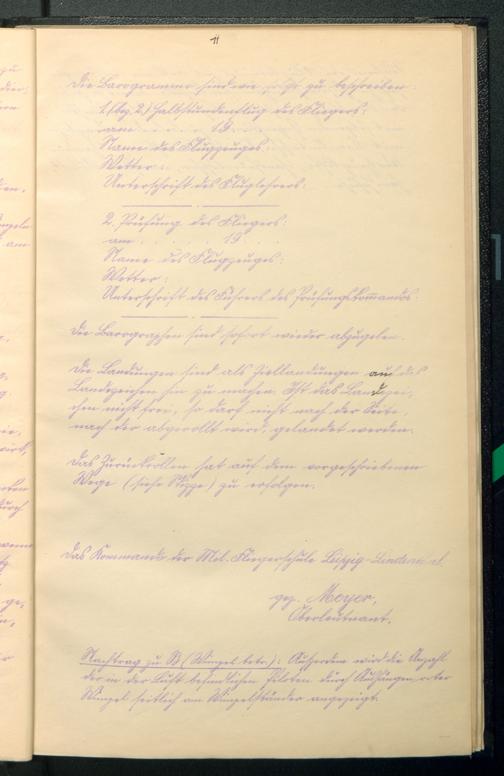 11
Die Barogramme sind wie folgt zu beschreiben:
1. (bez. 2.) Halbstundenflug des Fliegers:
am . . . . . 19 . . .
Name des Flugzeuges:
Wetter:
Unterschrift des Fluglehrers.
2. Prüfung des Fliegers:
am . . . . . 19 . . .
Name des Flugzeuges:
Wetter:
Unterschrift des Führers des Prüfungskommandos:
Die Barographen sind sofort wieder abzugeben.
Die Landungen sind als Ziellandungen auf das
Landezeichen hin zu machen. Ist das Landezei-
chen nicht frei, so darf nicht nach der Seite,
nach der abgerollt wird, gelandet werden.
Das Zurückrollen hat auf dem vorgeschriebenen
Wege (siehe Skizze) zu erfolgen.
Das Kommando der Mil. Fliegerschule Leipzig-Lindenthal.
gez. Meyer,
Oberleutnant.
Nachtrag zu B (Wimpel betr.): Außerdem wird die Anzahl
der in der Luft befindlichen Piloten durch Aushängen roter
Wimpel seitlich am Wimpelständer angezeigt.